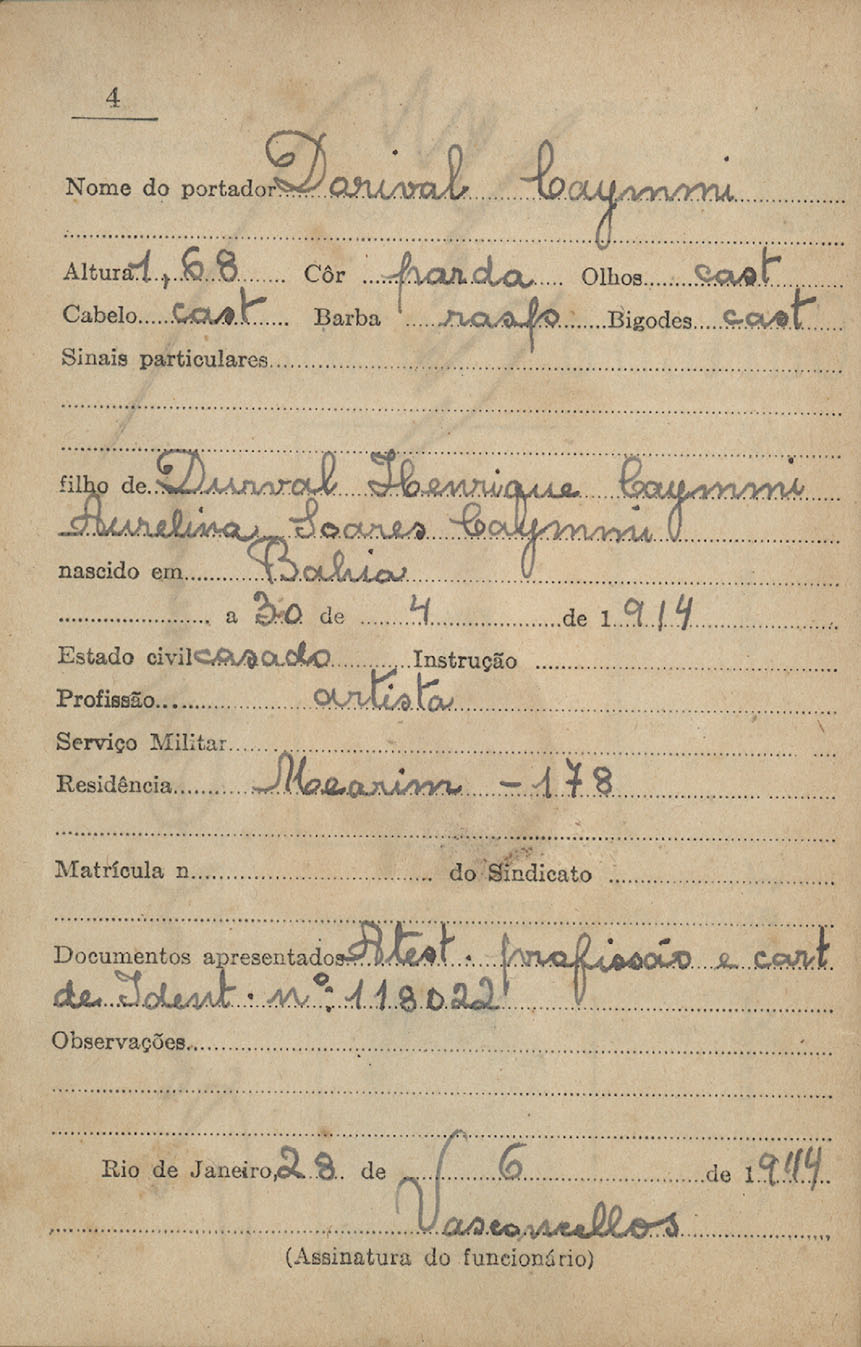 4
Nome do portador Dorival Caymmi
Altura 1,68 Côr parda Olhos cast
Cabelo cast Barba rasp Bigodes cast
Sinais particulares
filho de Durval Henrique Caymmi
Aurelina Soares Caymmi
nascido em Bahia
a 30 de 4 de 1914
Estado civil casado Instrução
Profissão artista
Serviço Militar
Residência Mearim - 178
Matrícula n do Sindicato
Documentos apresentados Atest. profissão e cart
de Ident. nº: 118022
Observações
Rio de Janeiro, 28 de 6 de 1944
Vasconcellos
(Assinatura do funcionário)